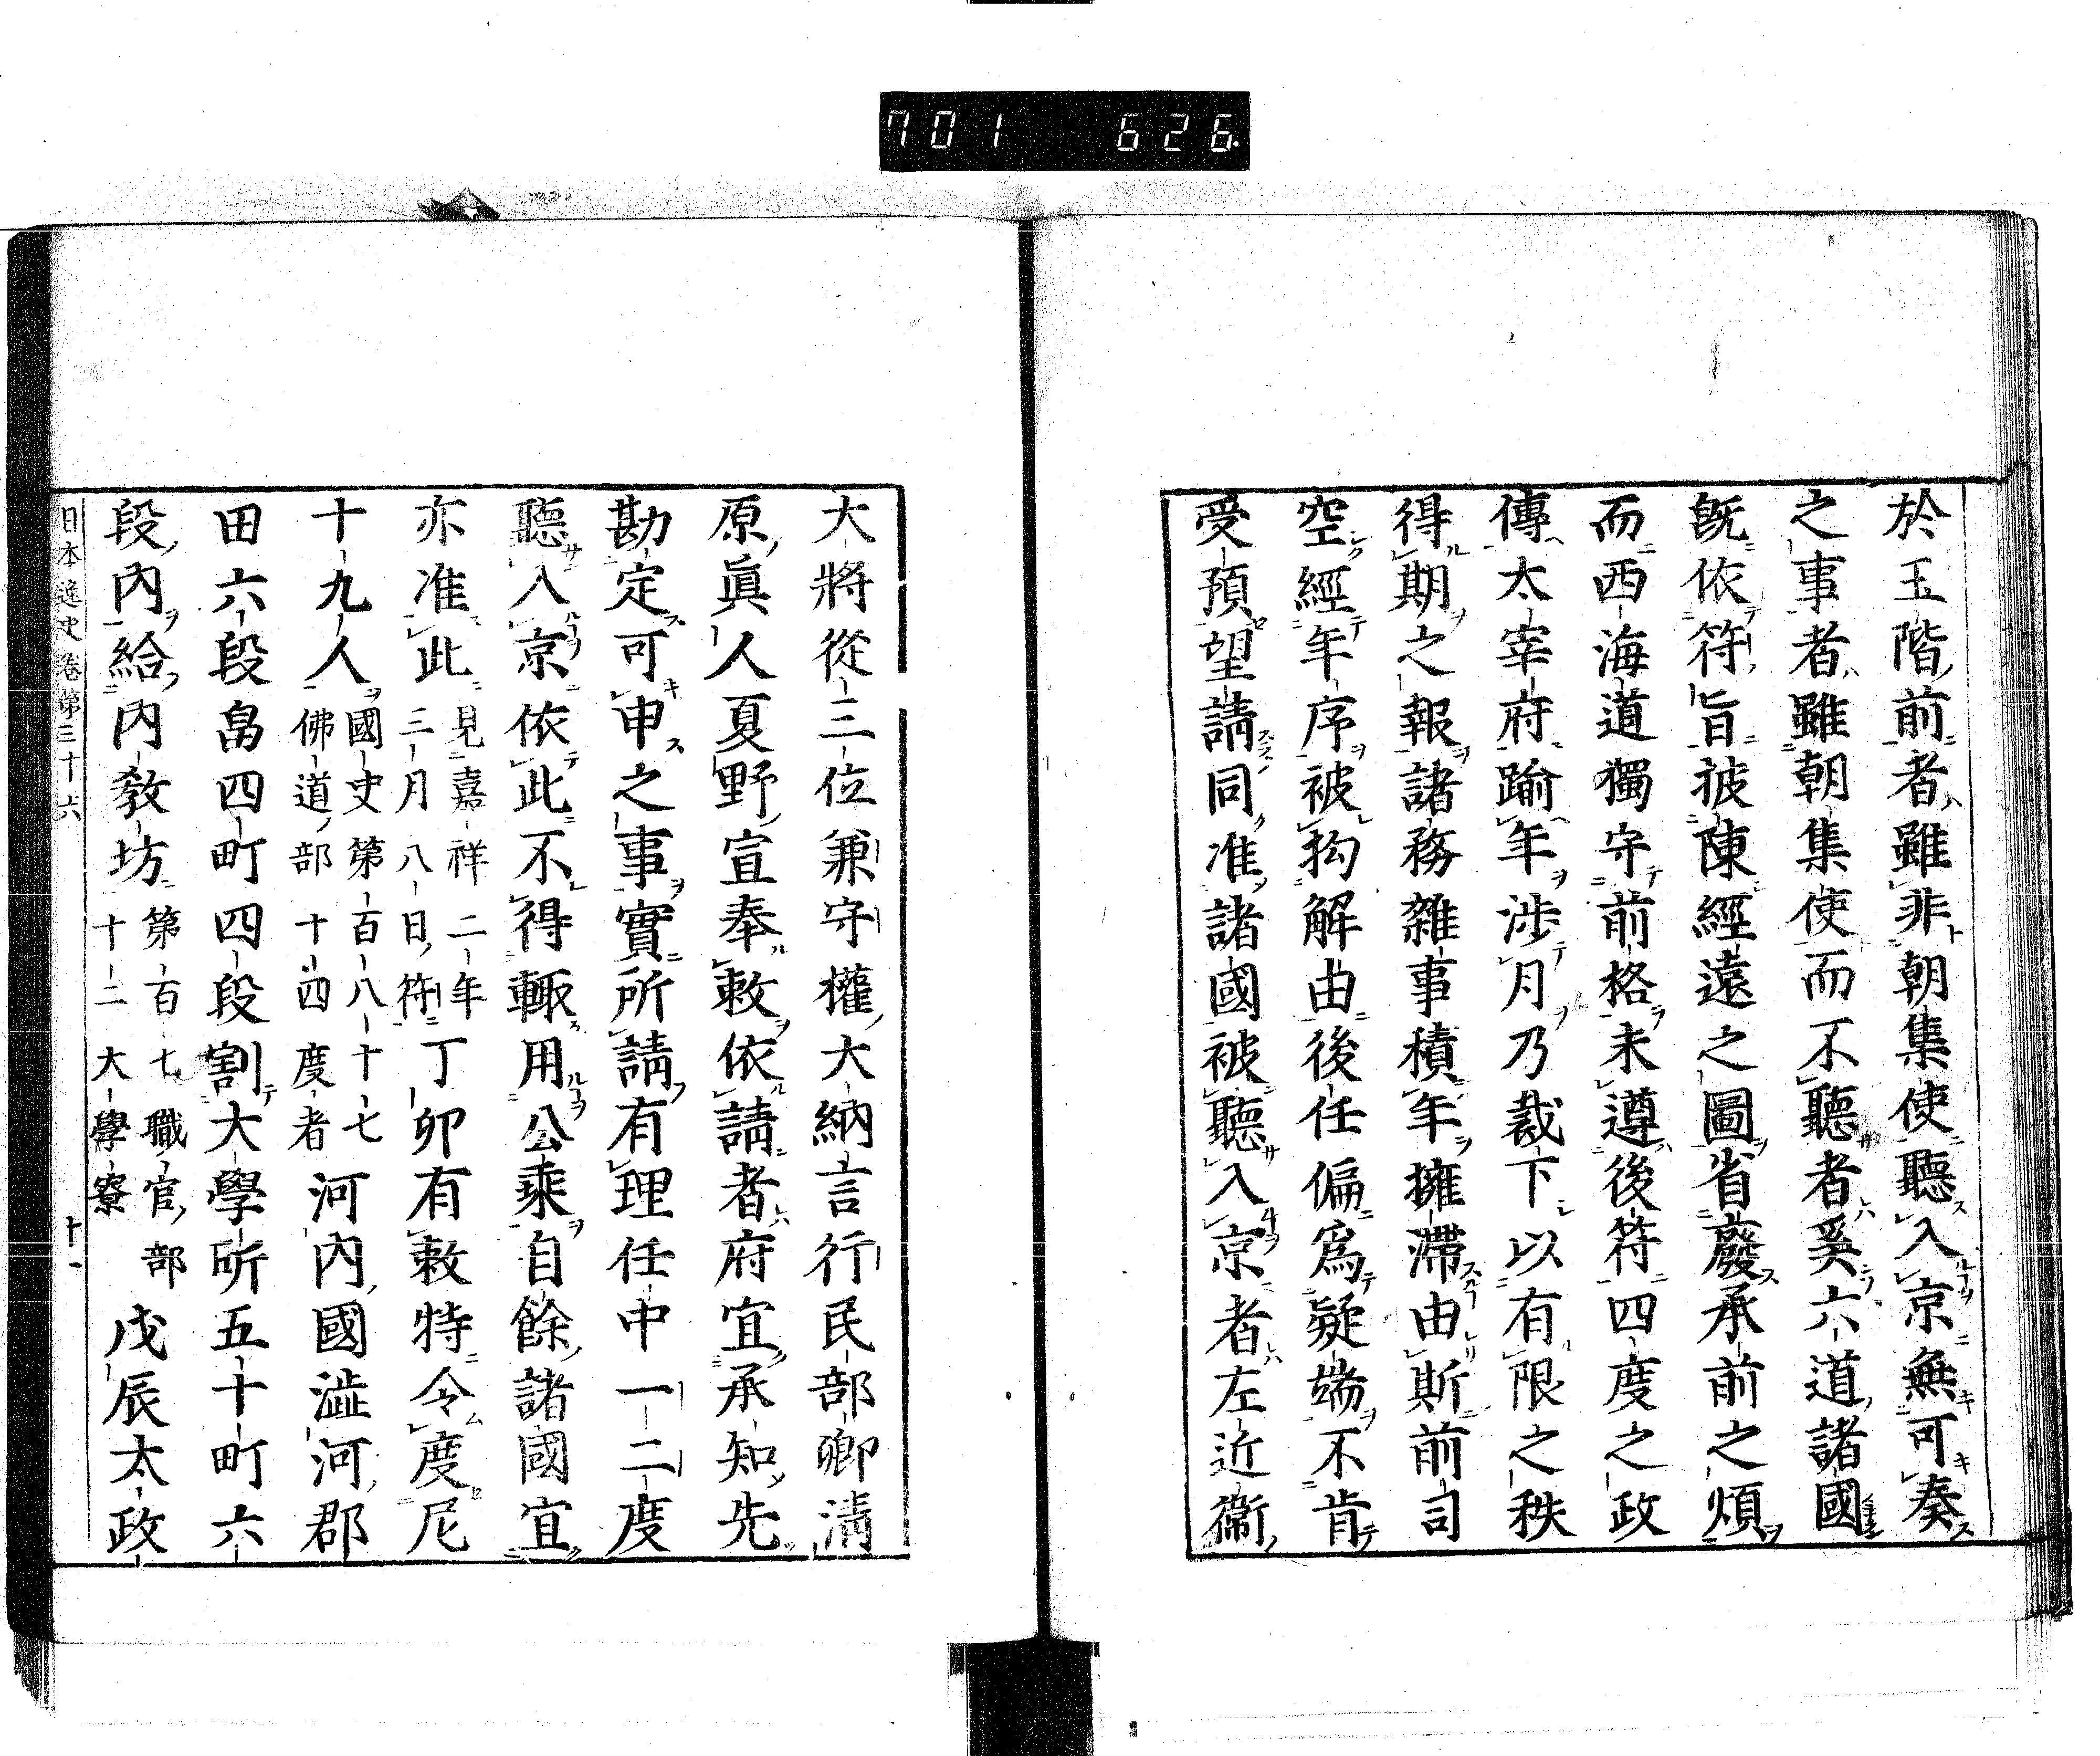 701 626
於玉階前者雖非朝集使聽入京無可奏
之事者雖朝集使而不聽者奚六道諸國
既依符旨披陳經遠之圖省廢承前之煩
而西海道獨守前格未遵後符四度之政
傳太宰府踰年渉月乃裁下以有限之秩
得期之報諸務雜事積年擁滯由斯前司
空經年序被拘解由後任偏爲疑端不肯
受預望請同准諸國被聽入京者左近衞
大將從三位兼守權大納言行民部卿淸
原眞人夏野宣奉敕依請者府宜承知先
勘定可申之事實所請有理任中一二度
聽入京依此不得輙用公乘自餘諸國宜
亦准此見嘉祥二年三月八日符丁卯有敕特令度尼
十九人國史第百八十七佛道部十四度者河内國澁河郡
田六段畠四町四段割大學所五十町六
段内給内敎坊第百七職官部十二大學寮戊辰太政
日本逸史卷第三十六 十一